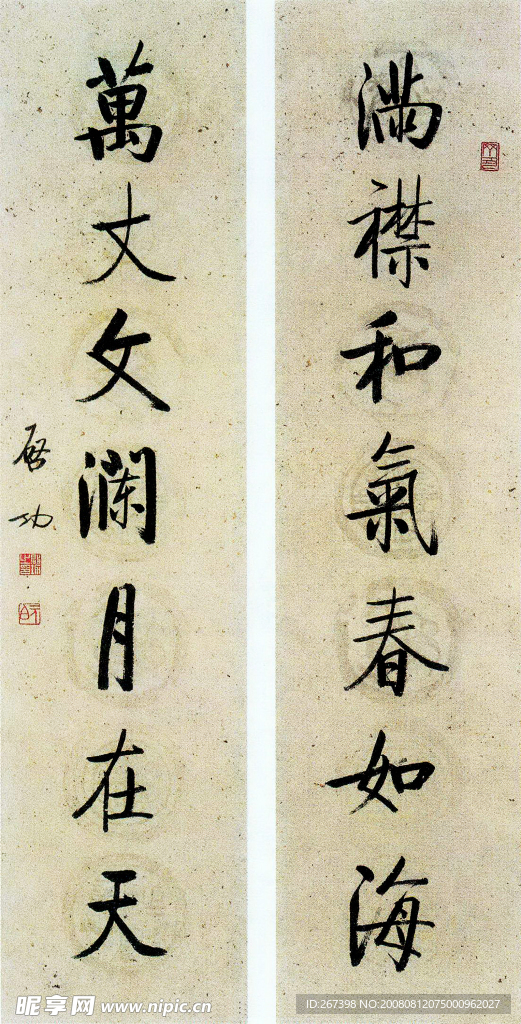 满襟和氣春如海
萬丈文瀾月在天
啓功
昵享网 www.nipic.cn
ID:267398 NO:20080812075000962027